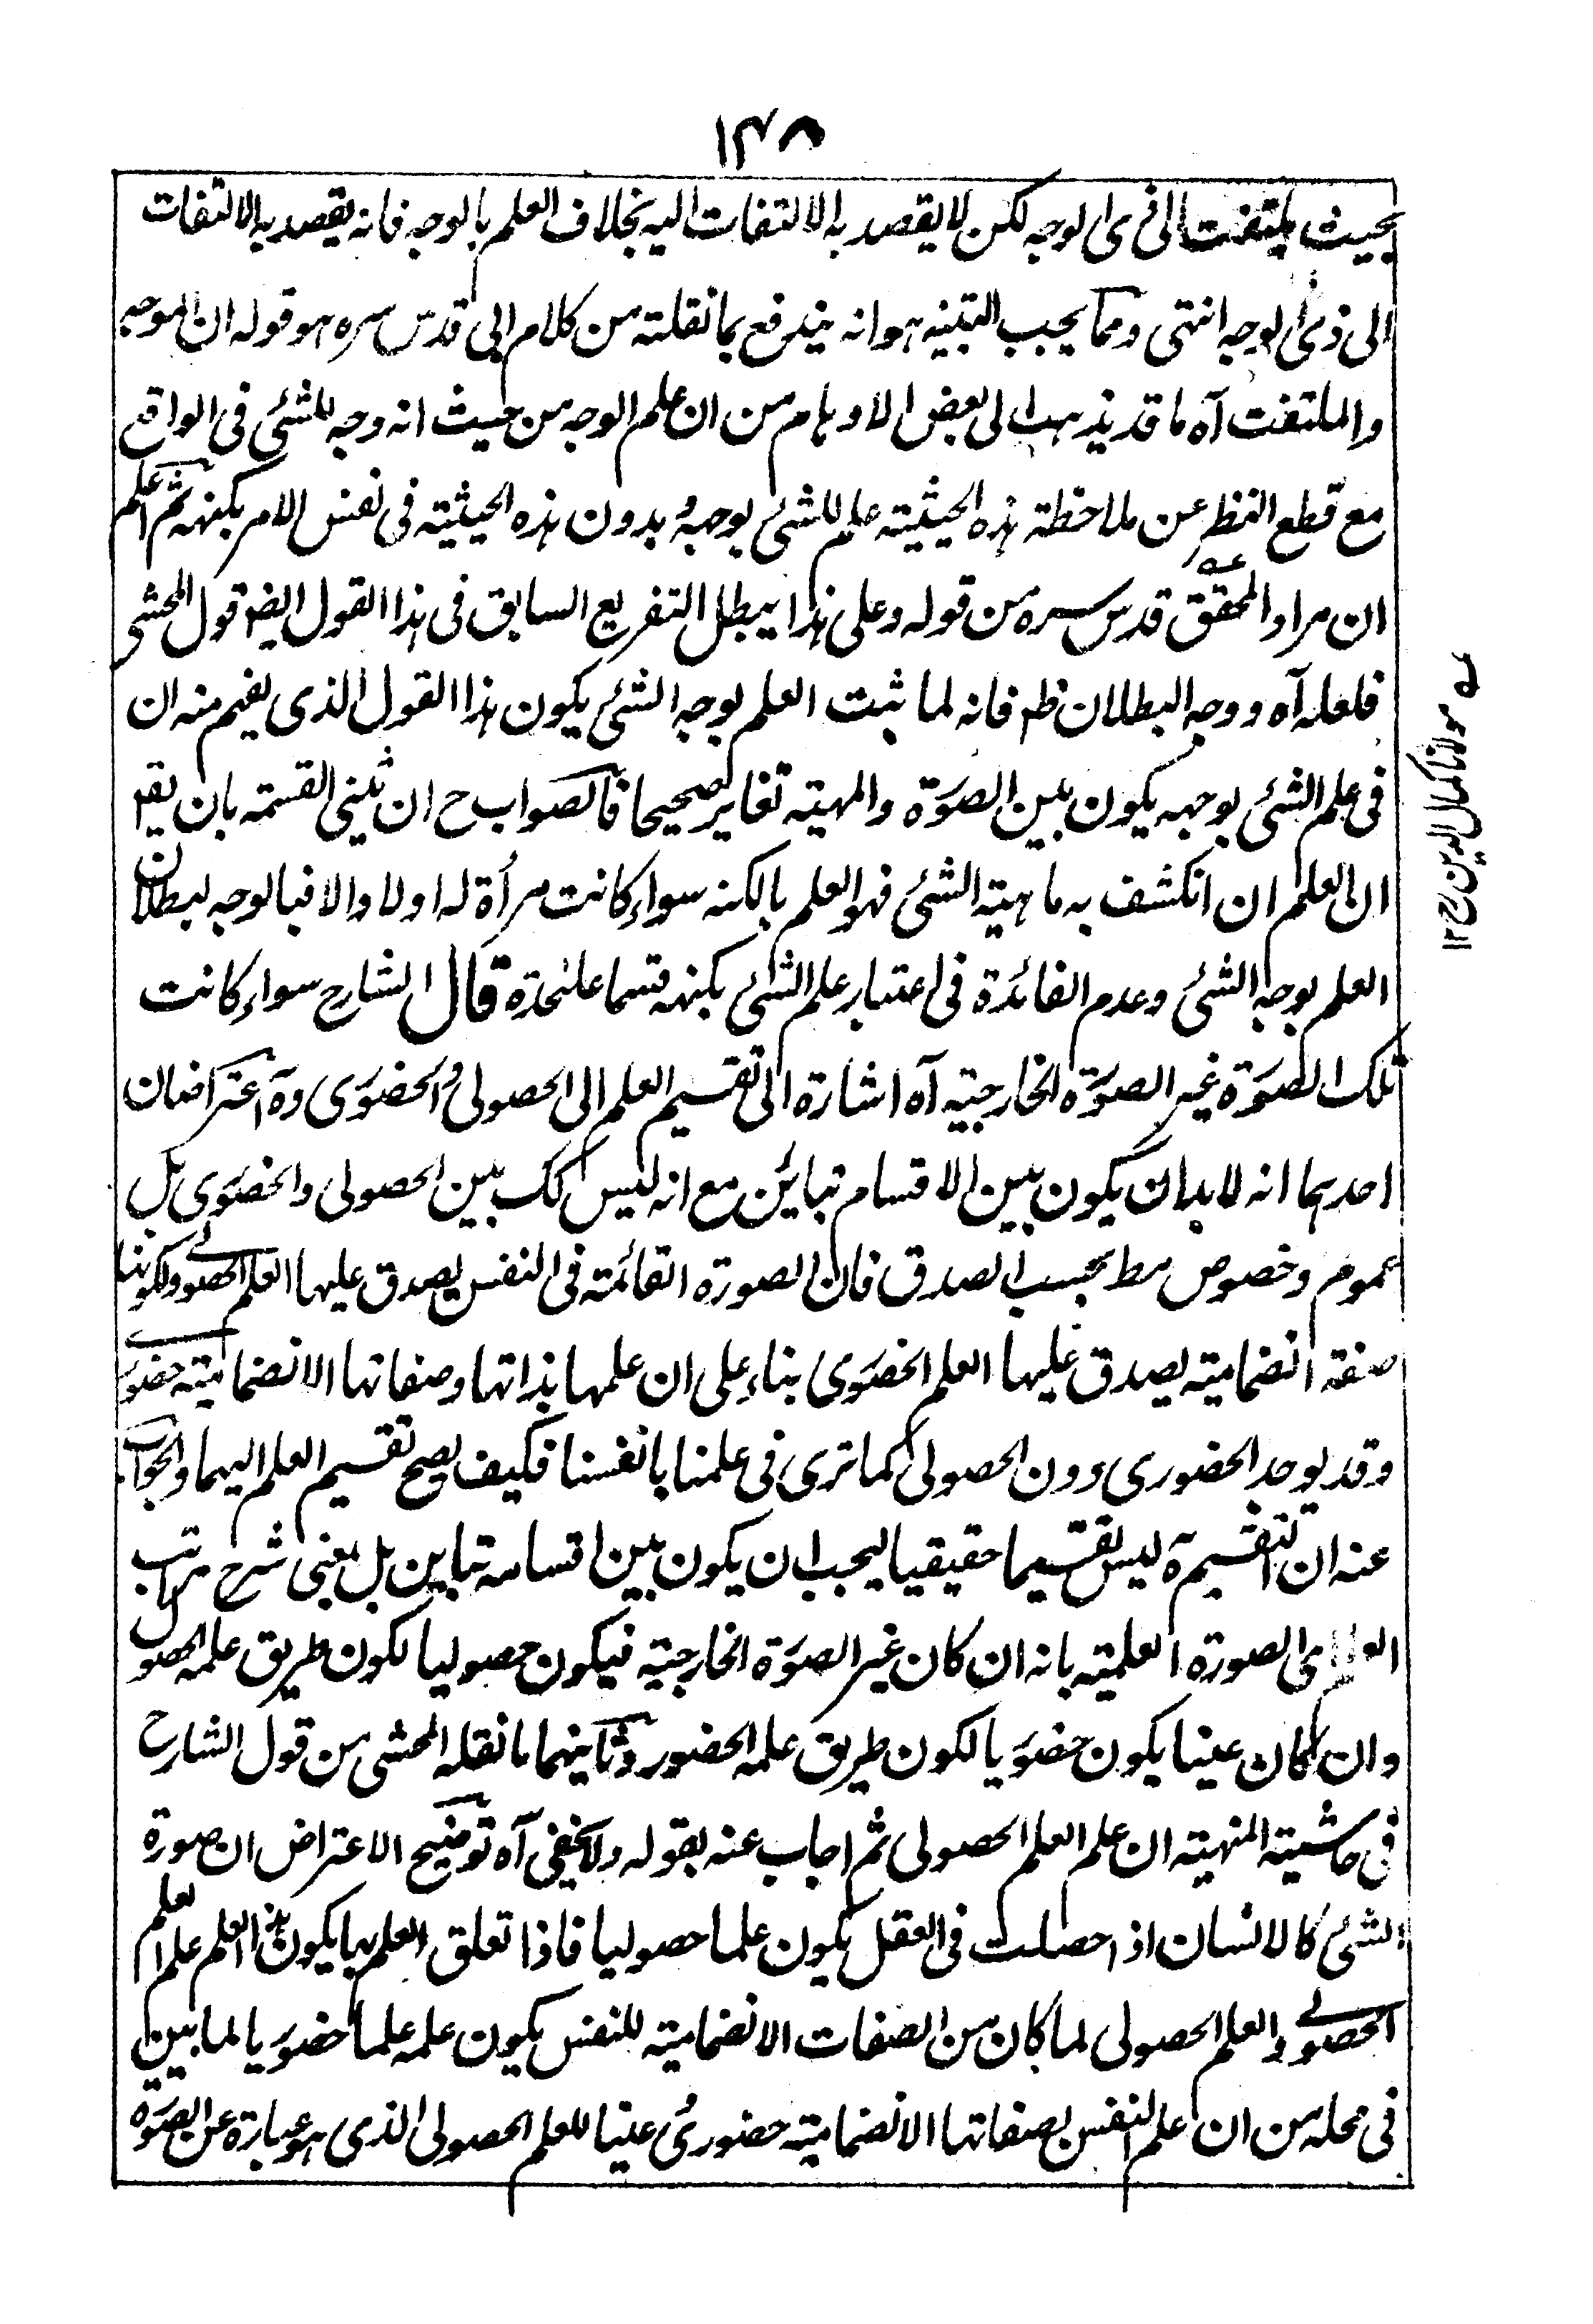 ١٤٨
بحيث يلتفت الى ذى الوجه لكن لا يقصد به الالتفات اليه بخلاف العلم بالوجه فانه يقصد به الالتفات
الى ذى الوجه انتهى ومما يجب التبنيه هو انه يندفع بما نقلته من كلام ابى قدس سره هو قوله ان الموجه
والملتفت آه ما قد يذهب الى بعض الاوهام من ان علم الوجه من حيث انه وجه للشئ فى الواقع
مع قطع النظر عن ملاحظة هذه الحيثية علم للشئ بوجهه وبدون هذه الحيثية فى نفس الامر بكنهه ثم اعلم
ان مراد المحقق عه قدس سره من قوله وعلى هذا يبطل التفريع السابق فى هذا القول ايضا قول المحشى
فلعله آه ووجه البطلان ظ فانه لما ثبت العلم بوجه الشئ يكون هذا القول الذى يفهم منه ان
فى علم الشئ بوجهه يكون بين الصورة والمهية تغاير صحيحا فالصواب ح ان يثنى القسمة بان يقر
ان العلم ان انكشف به ماهية الشئ فهو العلم بالكنه سواء كانت مرأة له اولا والا فبالوجه لبطلان
العلم بوجه الشئ وعدم الفائدة فى اعتبار علم الشئ بكنهه قسما علىحدة قال الشارح سواء كانت
تلك الصورة غير الصورة الخارجية آه اشارة الى تقسيم العلم الى الحصولى والحضورى وه اعتراضان
احدهما انه لا بد ان يكون بين الاقسام تبائن مع انه ليس كك بين الحصولى والحضورى بل
عموم وخصوص مط بحسب الصدق فان الصورة القائمة فى النفس يصدق عليها العلم الحصولى ولكونها
صفة انضمامية يصدق عليها العلم الحضورى بناء على ان علمها بذاتها وصفاتها الانضمامية حضورى
وقد يوجد الحضورى دون الحصولى كما ترى فى علمنا بانفسنا فكيف يصح تقسيم العلم اليهما والجواب
عنه ان التقسيم ه ليس تقسيما حقيقيا ليجب ان يكون بين اقسامه تباين بل بمعنى شرح مراتب
العلم اى الصورة العلمية بانه ان كان غير الصورة الخارجية فيكون حصوليا لكون طريق علمه الحصول
وان كان عينها يكون حضوريا لكون طريق علمه الحضور وثانيهما ما نقله المحشى من قول الشارح
فى حاشية المنهية ان علم العلم الحصولى ثم اجاب عنه بقوله ولا يخفى آه توضيح الاعتراض ان صورة
الشئ كالانسان اذا حصلت فى العقل يكون علما حصوليا فاذا تعلق العلم بها يكون هذا العلم علم العلم
الحصولى والعلم الحصولى لما كان من الصفات الانضمامية للنفس يكون علمه علما حضوريا لما بين
فى محله من ان علم النفس بصفاتها الانضمامية حضورى عينا للعلم الحصولى الذى هو عبارة عن الصورة
عه مولانا كمال الدين رح ١٢